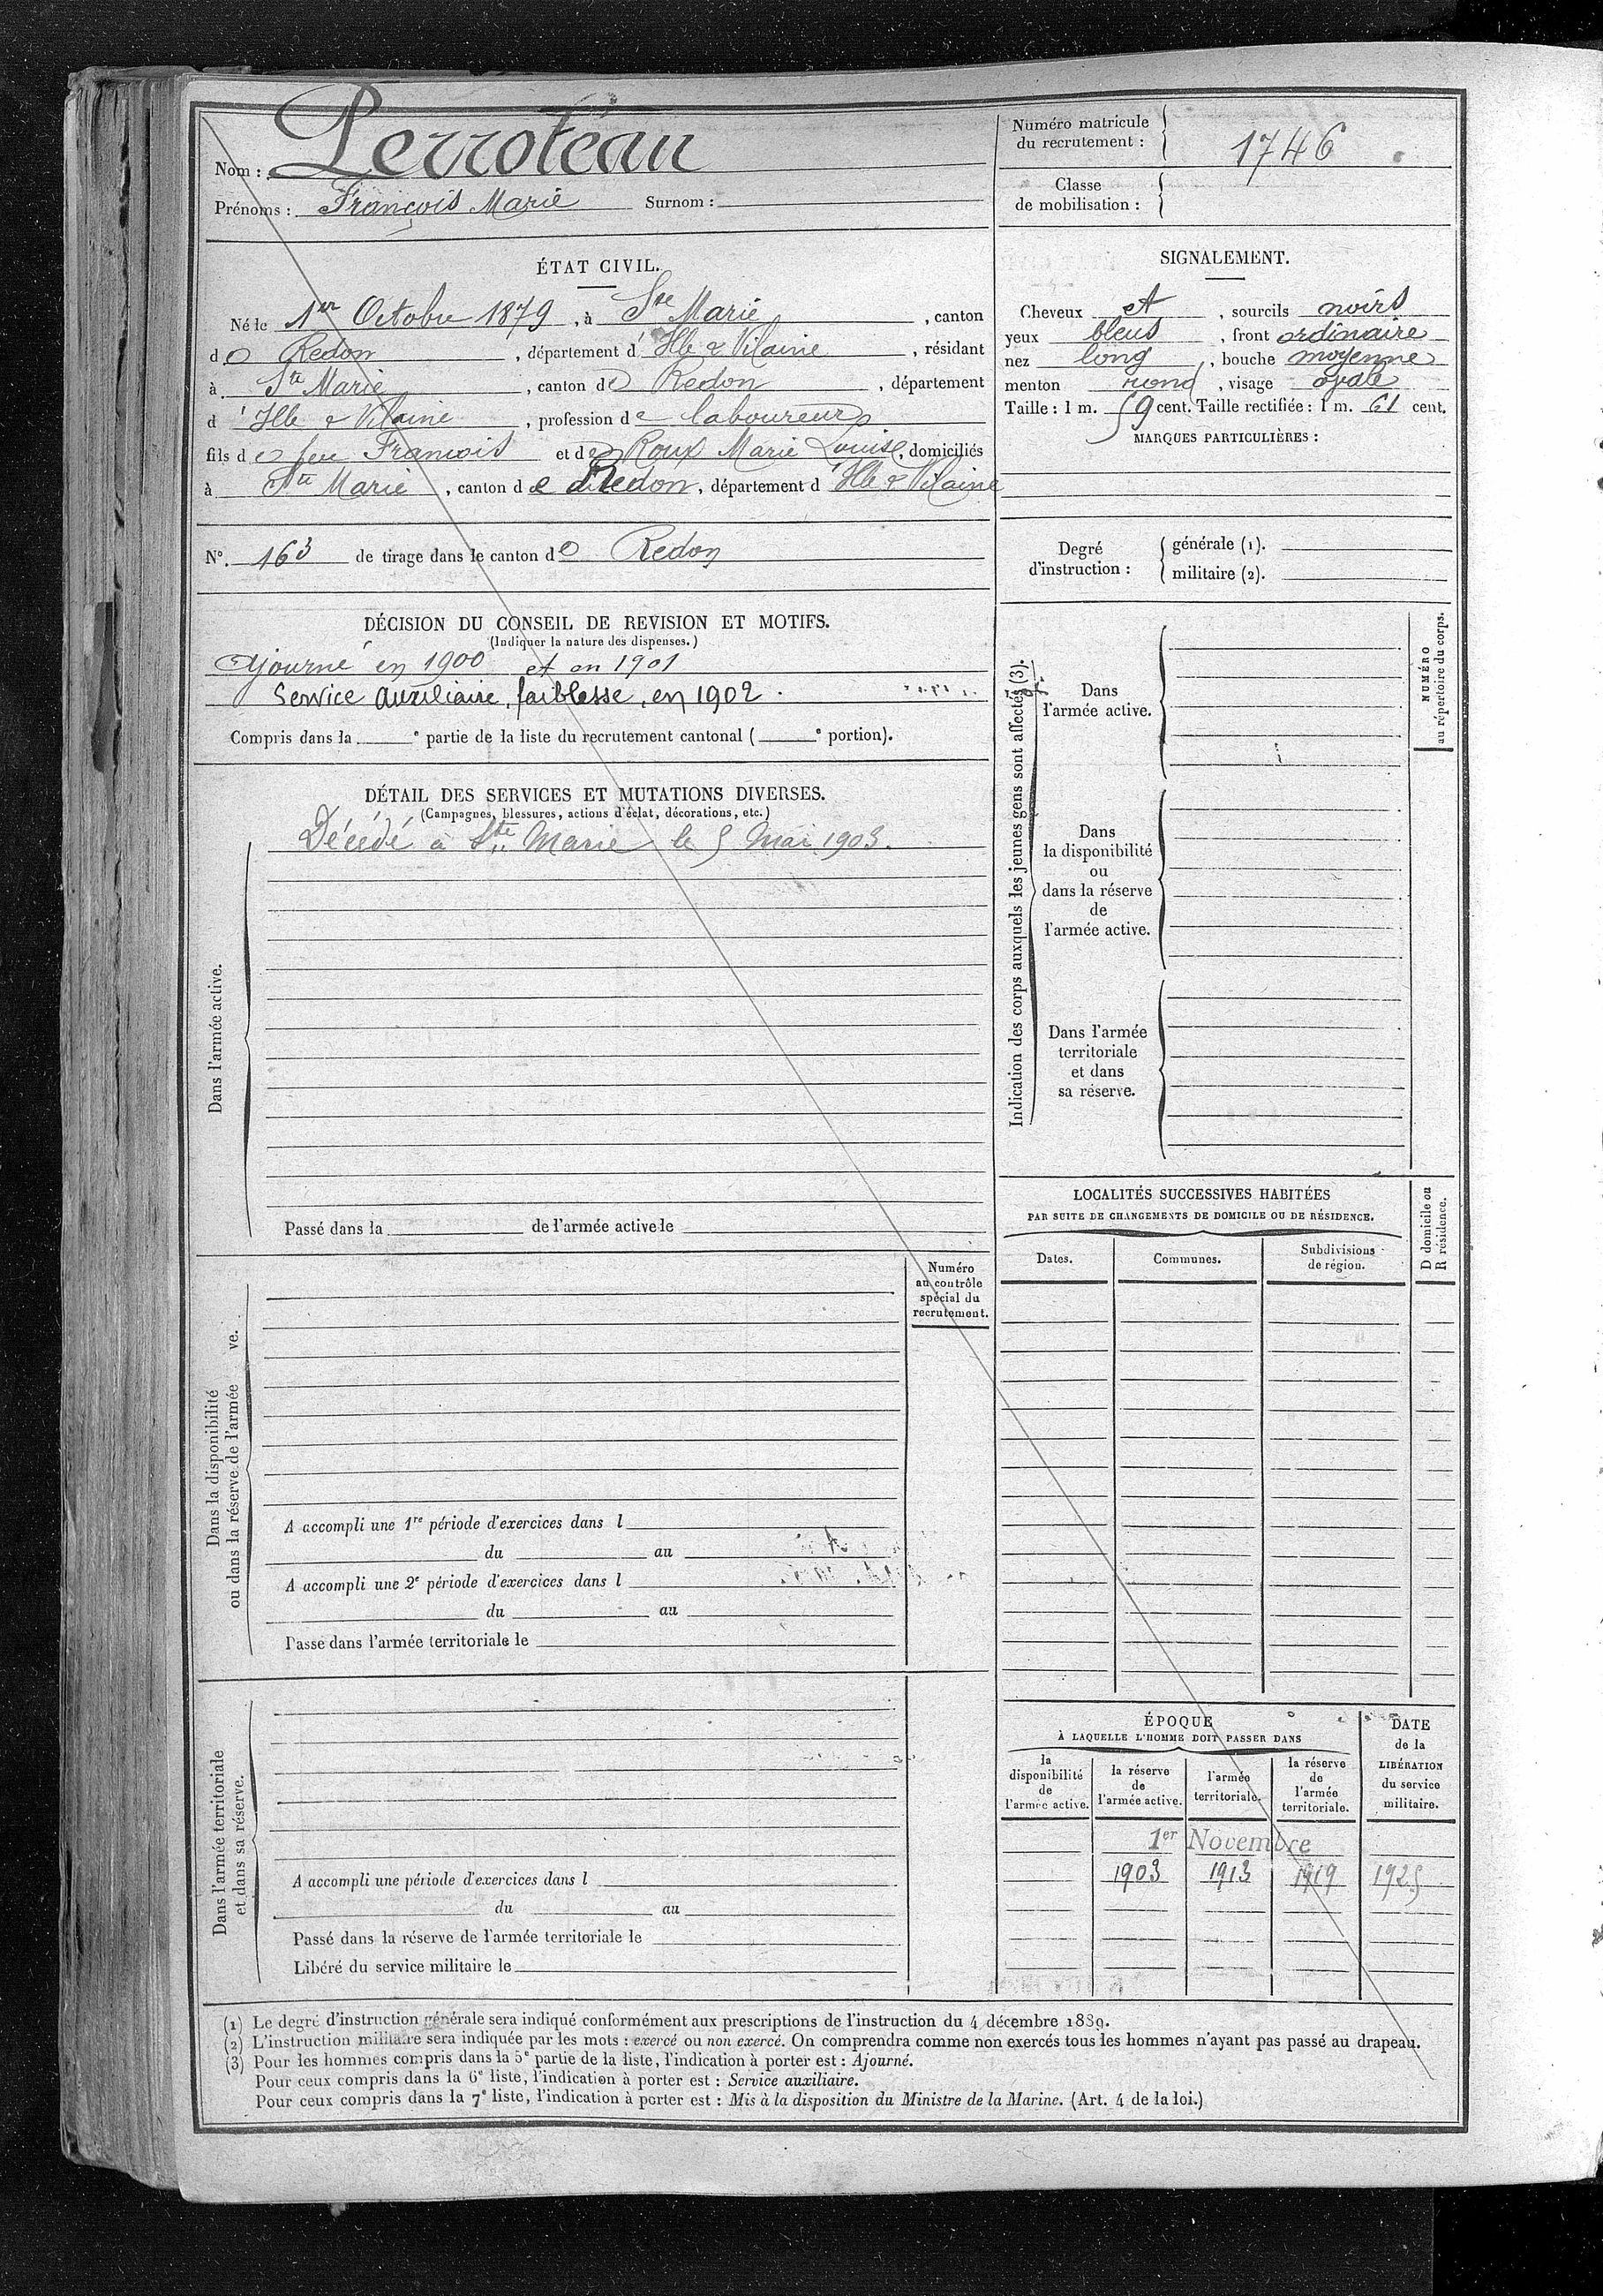 Nom : Perrotéau
Prénoms : François Marie Surnom :
Numéro matricule du recrutement : 1746
Classe de mobilisation :
ÉTAT CIVIL.
Né le 1er Octobre 1879, à Ste Marie, canton
de Redon, département d'Ille & Vilaine, résidant
à Ste Marie, canton de Redon, département
d'Ille & Vilaine, profession de laboureur
fils de feu François et de Roux Marie Louise, domiciliés
à Ste Marie, canton de Redon, département d'Ille & Vilaine
SIGNALEMENT.
Cheveux et, sourcils noirs
yeux bleus, front ordinaire
nez long, bouche moyenne
menton rond, visage ovale
Taille : 1 m. 59 cent. Taille rectifiée : 1 m. 61 cent.
MARQUES PARTICULIÈRES :
N°. 163 de tirage dans le canton de Redon
Degré d'instruction :
générale (1).
militaire (2).
DÉCISION DU CONSEIL DE REVISION ET MOTIFS.
(Indiquer la nature des dispenses.)
Ajourné en 1900 et en 1901
Service Auxiliaire, faiblesse, en 1902.
Compris dans la e partie de la liste du recrutement cantonal ( e portion).
DÉTAIL DES SERVICES ET MUTATIONS DIVERSES.
(Campagnes, blessures, actions d'éclat, décorations, etc.)
Dans l'armée active.
Décédé à Ste Marie le 5 Mai 1903.
Passé dans la de l'armée active le
Indication des corps auxquels les jeunes gens sont affectés (3).
Dans
l'armée active.
Dans
la disponibilité
ou
dans la réserve
de
l'armée active.
Dans l'armée
territoriale
et dans
sa réserve.
NUMÉRO
au répertoire du corps.
LOCALITÉS SUCCESSIVES HABITÉES
PAR SUITE DE CHANGEMENTS DE DOMICILE OU DE RÉSIDENCE.
Dates.
Communes.
Subdivisions
de région.
D domicile ou
R résidence.
Numéro
au contrôle
spécial du
recrutement.
Dans la disponibilité
ou dans la réserve de l'armée ve.
A accompli une 1re période d'exercices dans l
du au
A accompli une 2e période d'exercices dans l
du au
Passé dans l'armée territoriale le
Dans l'armée territoriale
et dans sa réserve.
A accompli une période d'exercices dans l
du au
Passé dans la réserve de l'armée territoriale le
Libéré du service militaire le
ÉPOQUE
À LAQUELLE L'HOMME DOIT PASSER DANS
la
disponibilité
de
l'armée active.
la réserve
de
l'armée active.
l'armée
territoriale.
la réserve
de
l'armée
territoriale.
DATE
de la
LIBÉRATION
du service
militaire.
1er Novembre
1903 1913 1919 1925
(1) Le degré d'instruction générale sera indiqué conformément aux prescriptions de l'instruction du 4 décembre 1889.
(2) L'instruction militaire sera indiquée par les mots : exercé ou non exercé. On comprendra comme non exercés tous les hommes n'ayant pas passé au drapeau.
(3) Pour les hommes compris dans la 5e partie de la liste, l'indication à porter est : Ajourné.
Pour ceux compris dans la 6e liste, l'indication à porter est : Service auxiliaire.
Pour ceux compris dans la 7e liste, l'indication à porter est : Mis à la disposition du Ministre de la Marine. (Art. 4 de la loi.)